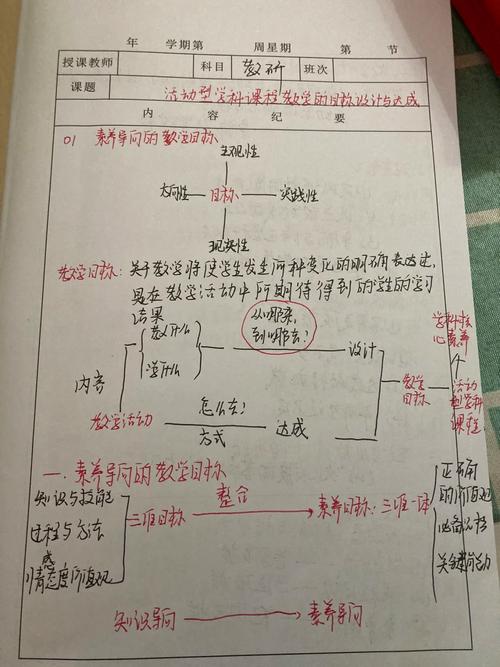 年 学期第 周星期 第 节
授课教师 科目 教研 班次
课题 活动型学科课程教学的目标设计与达成
内 容 纪 要
01 素养导向的教学目标
主观性
方向性 — 目标 — 实践性
现实性
教学目标：关于教学将使学生发生何种变化的明确表述，
是在教学活动中所期待得到的学生的学习
结果
从哪来，
到哪去？
教什么
学什么
内容
设计
学科核
心素养
教学
目标
活动
型学科
课程
教学活动
怎么去？
方式
达成
一、素养导向的教学目标
知识与技能
过程与方法
情感态度价值观
三维目标
整合
素养目标：三维一体
正确
的价值观
必备品格
关键能力
知识导向 → 素养导向